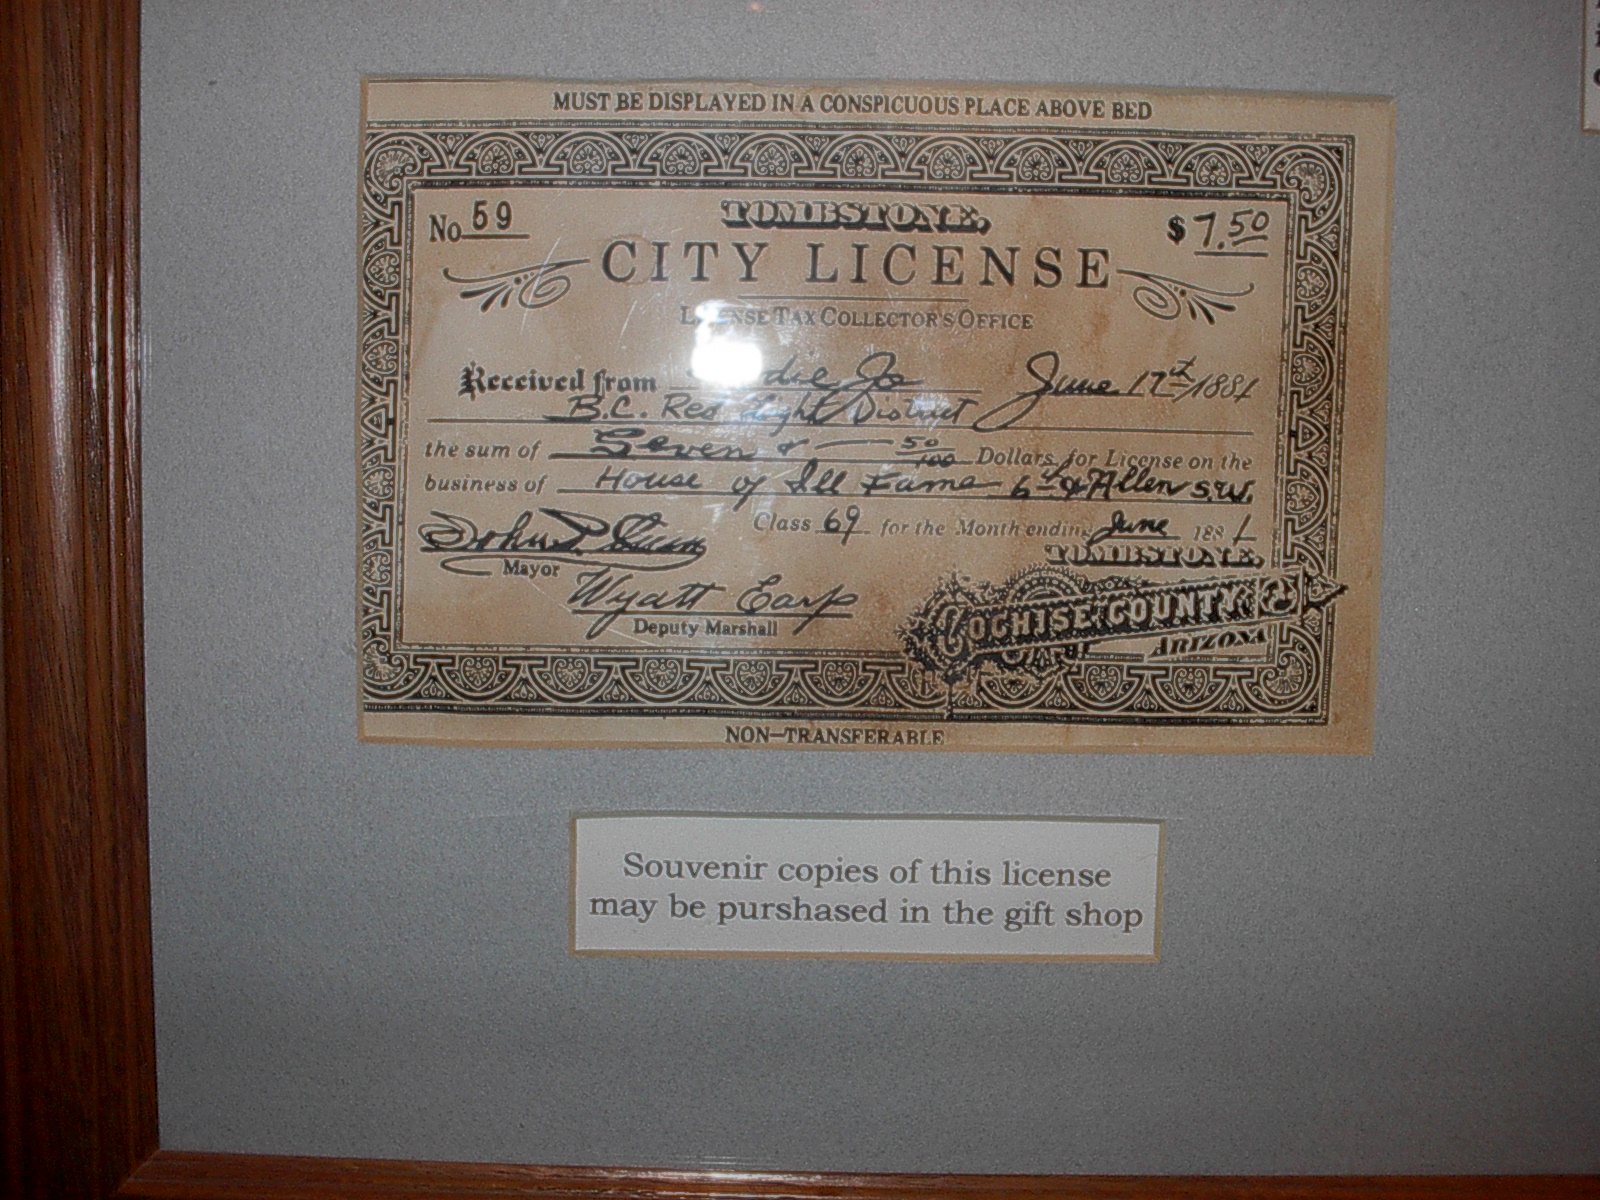 MUST BE DISPLAYED IN A CONSPICUOUS PLACE ABOVE BED
No 59 TOMBSTONE, $7.50
CITY LICENSE
LICENSE TAX COLLECTOR'S OFFICE
Received from Jo June 17th 1881
B.C. Red Light District
the sum of Seven & 50/100 Dollars for License on the
business of House of Ill Fame 6th & Allen S.W.
Class 69 for the Month ending June 1881
John P. Clum
Mayor
Wyatt Earp
Deputy Marshall
TOMBSTONE,
COCHISE COUNTY
ARIZONA
NON–TRANSFERABLE
Souvenir copies of this license
may be purshased in the gift shop